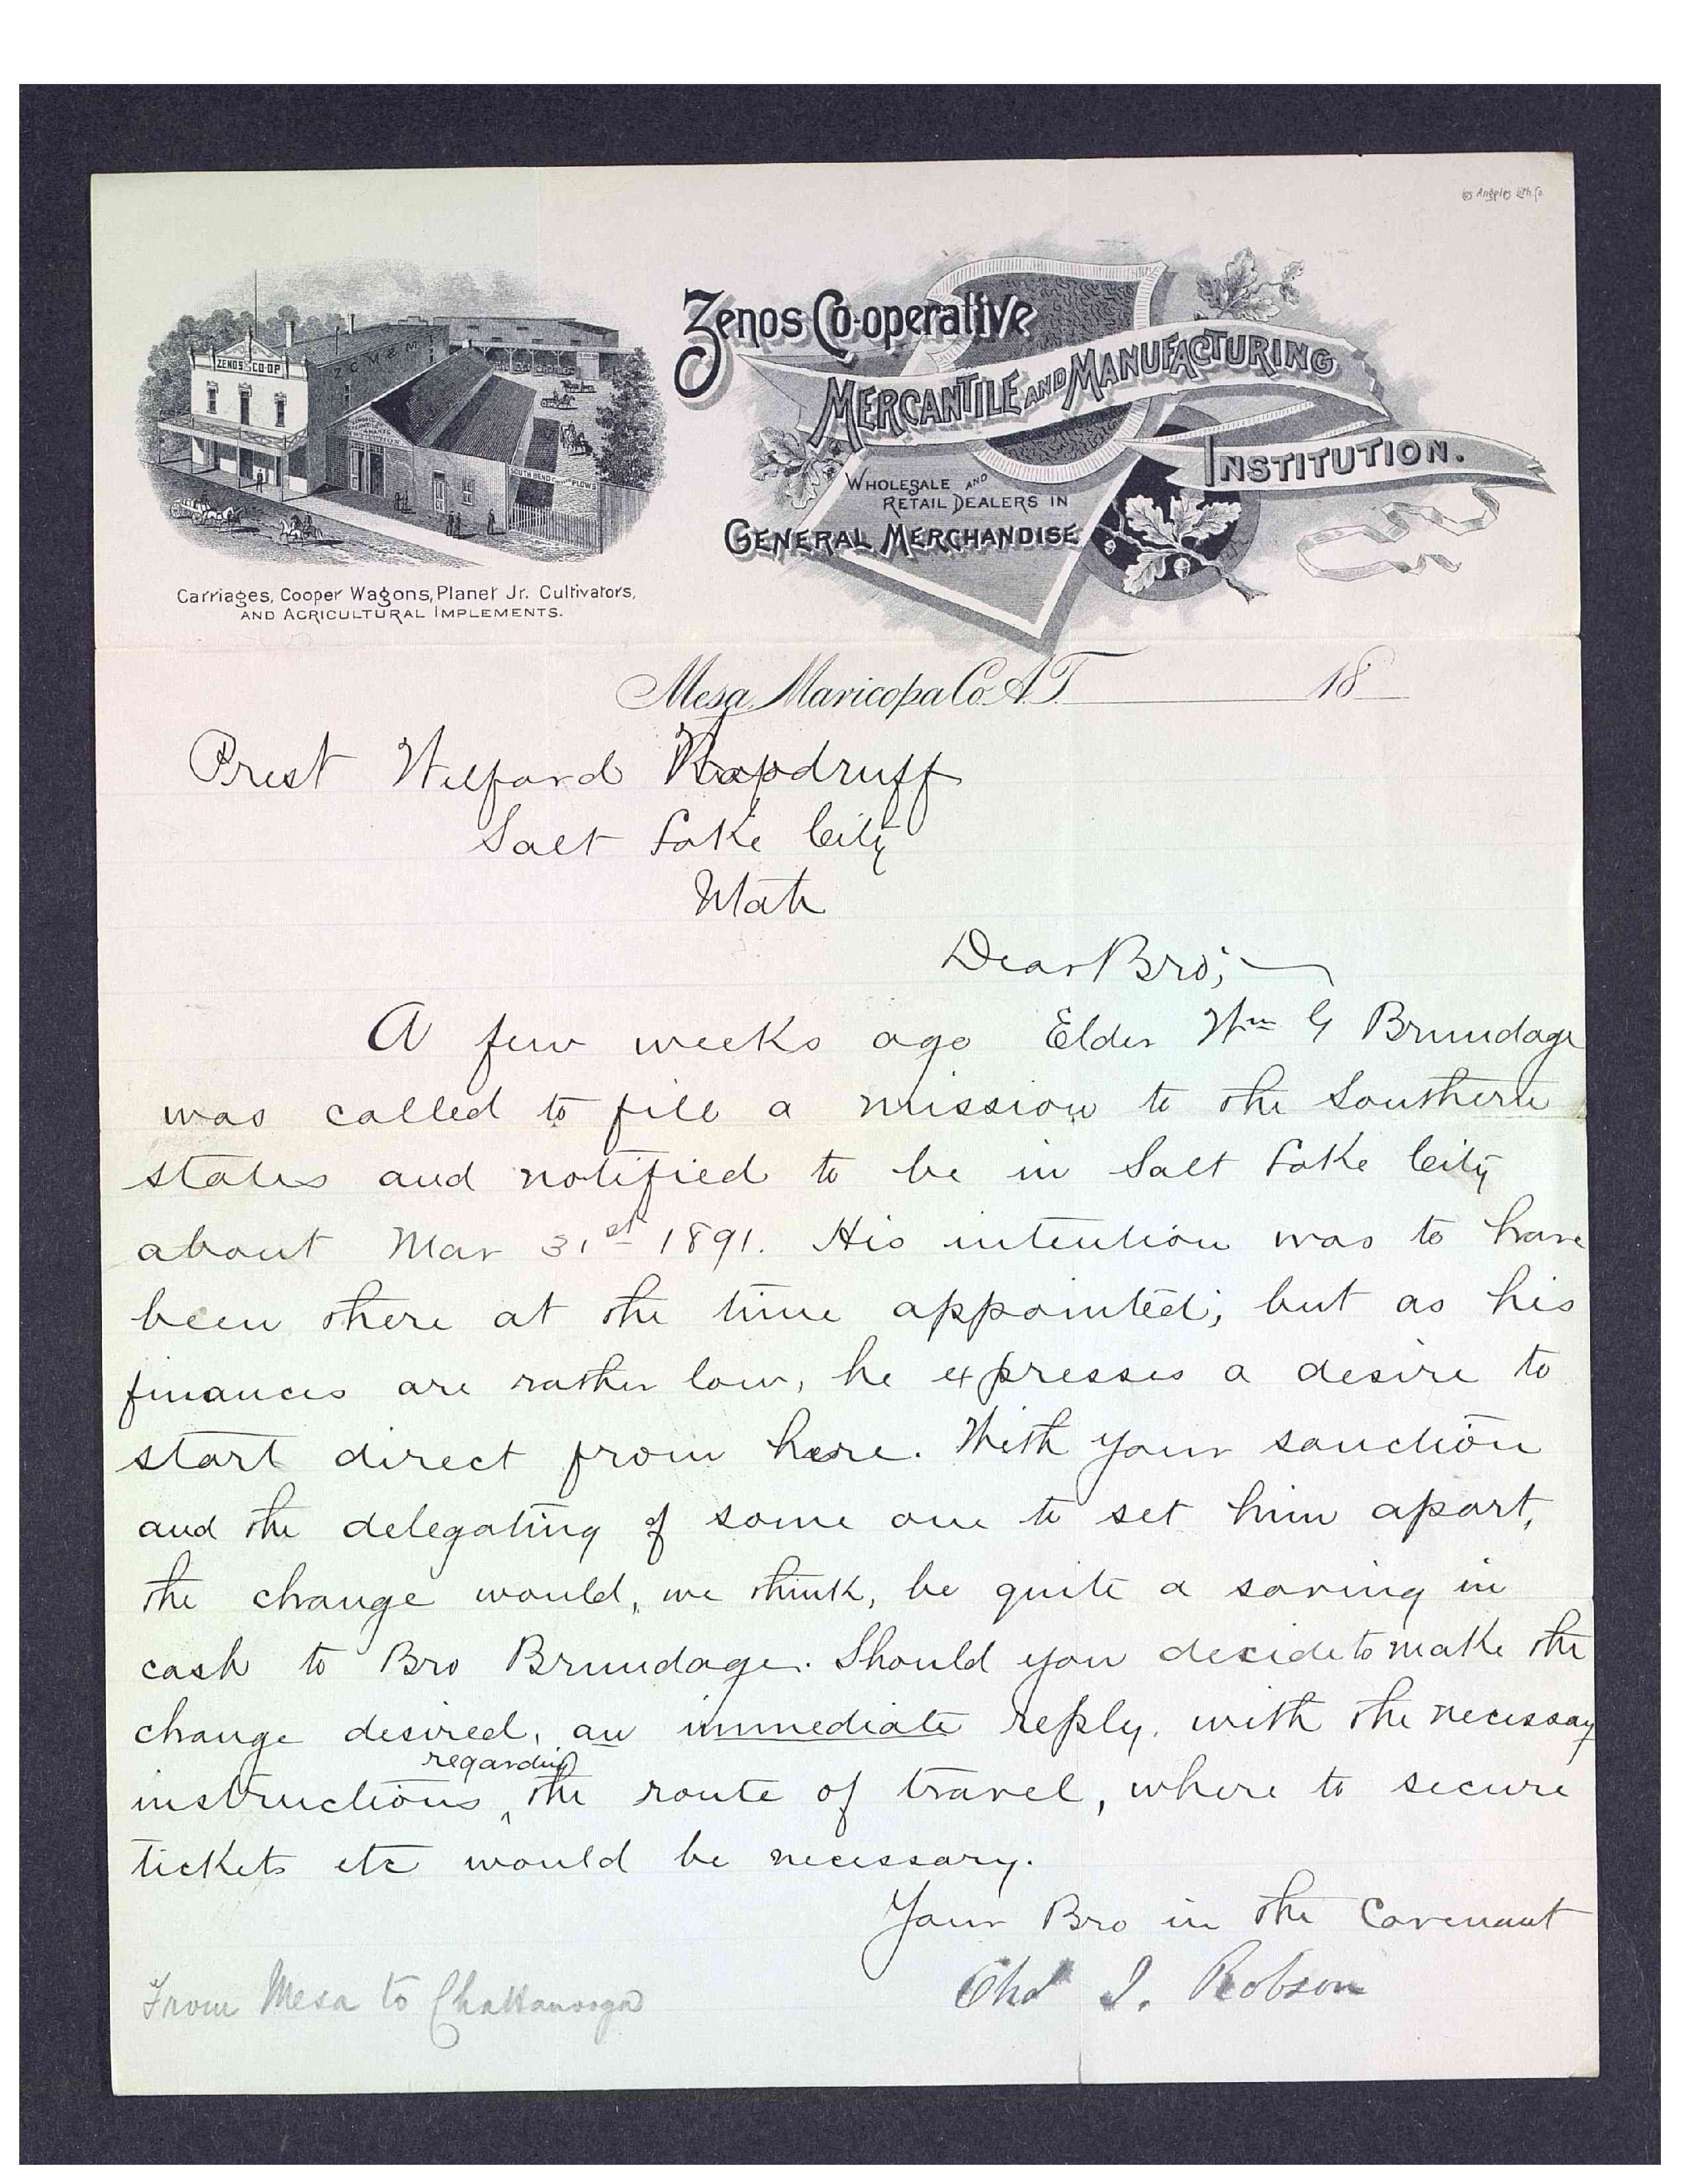 Los Angeles Lith. Co.
Zenos Co-operative
Mercantile and Manufacturing
Institution.
Wholesale and
Retail Dealers in
General Merchandise
ZENOS CO-OP
Z C M & M I
SOUTH BEND PLOWS
Carriages, Cooper Wagons, Planet Jr. Cultivators,
and Agricultural Implements.
Mesa, Maricopa Co. A.T. 18
Prest Wilford Woodruff
Salt Lake City
Utah
Dear Bro;
A few weeks ago Elder Wm G Brundage
was called to fill a mission to the Southern
states and notified to be in Salt Lake City
about Mar 31st 1891. His intention was to have
been there at the time appointed; but as his
finances are rather low, he expresses a desire to
start direct from here. With your sanction
and the delegating of some one to set him apart,
the change would, we think, be quite a saving in
cash to Bro Brundage. Should you decide to make the
change desired, an immediate reply, with the necessay
regarding
instructions ^ the route of travel, where to secure
tickets etc would be necessary.
Your Bro in the Covenant
Chas I. Robson
From Mesa to Chattanooga